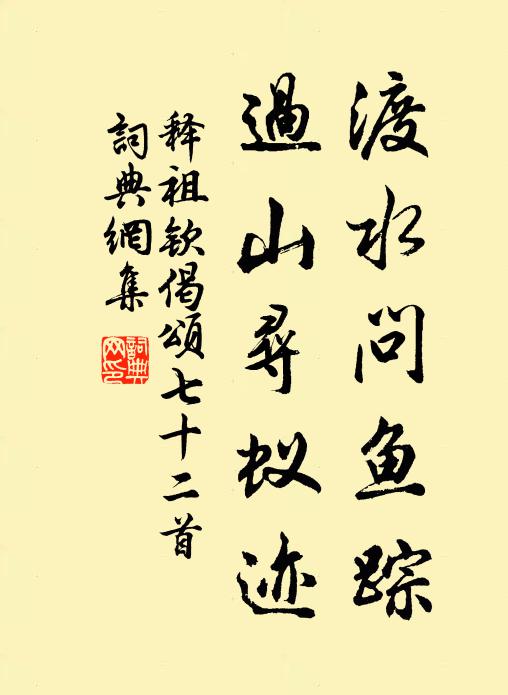 渡水问鱼踪
過山尋蚁迹
释祖欽偈頌七十二首
詞典網集
詞典网印